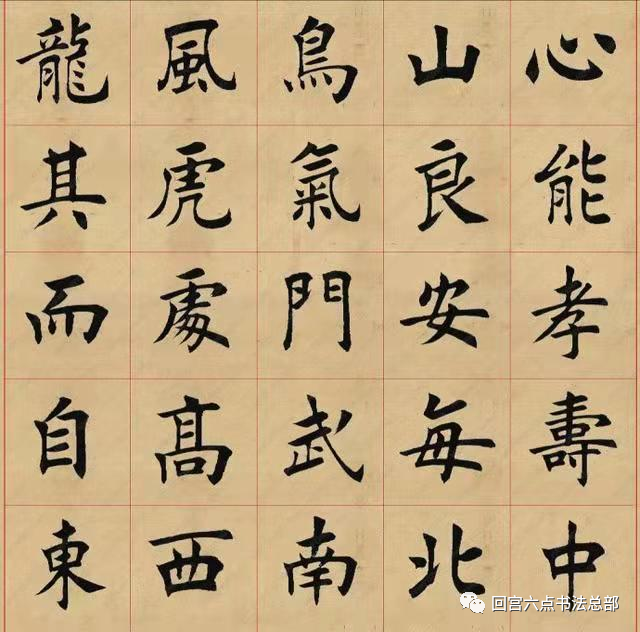 龍風鳥山心
其虎氣良能
而處門安孝
自髙武每壽
東西南北中
回宫六点书法总部